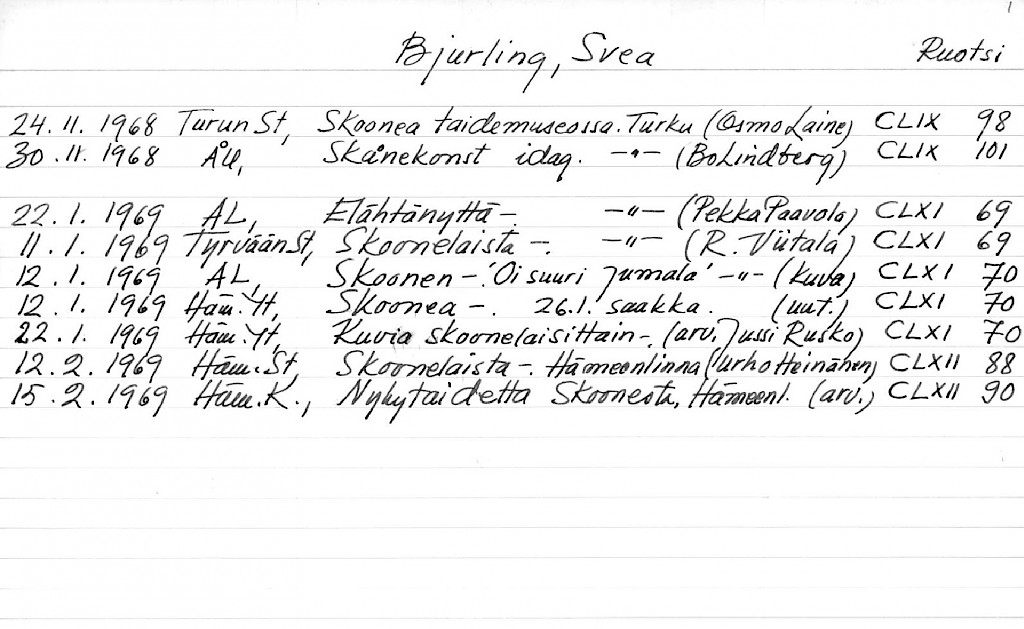 1
Bjurling, Svea Ruotsi
24.11.1968 Turun St, Skoonea taidemuseossa. Turku (Osmo Laine) CLIX 98
30.11.1968 ÅU, Skånekonst idag. -"- (Bo Lindberg) CLIX 101
22.1.1969 AL, Elähtänyttä -. -"- (Pekka Paavola) CLXI 69
11.1.1969 Tyrvään St, Skoonelaista -. -"- (R. Viitala) CLXI 69
12.1.1969 AL, Skoonen -. 'Oi suuri Jumala' -"- (kuva) CLXI 70
12.1.1969 Häm. Yt, Skoonea -. 26.1. saakka. (uut.) CLXI 70
22.1.1969 Häm. Yt, Kuvia skoonelaisittain -. (arv. Jussi Rusko) CLXI 70
12.2.1969 Häm. St, Skoonelaista -. Hämeenlinna (Urho Heinänen) CLXII 88
15.2.1969 Häm. K., Nykytaidetta Skoonesta, Hämeenl. (arv.) CLXII 90